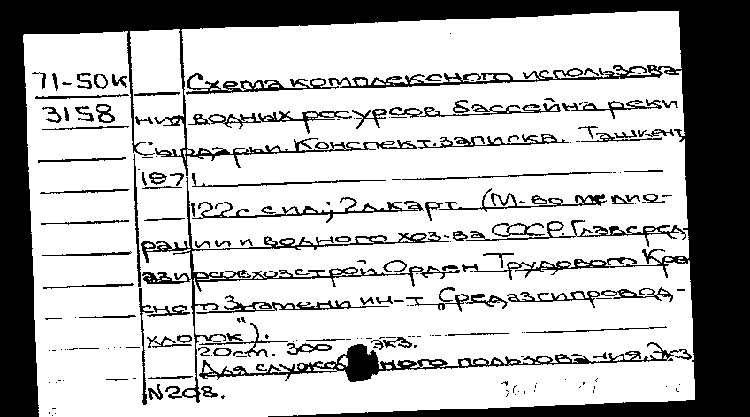 71-50к Схема комплексного использова-
3158 ния водных ресурсов бассейна реки
Сырдарьи. Конспект. записка. Ташкент,
1971.
122 с. с ил.; 2 л. карт. (М-во мелио-
рации и водного хоз-ва СССР. Главсред-
азирсовхозстрой. Орден Трудового Кра-
сного Знамени ин-т „Средазгипровод-
хлопок").
20 см. 300 экз.
Для служебного пользования. Экз.
N 208.